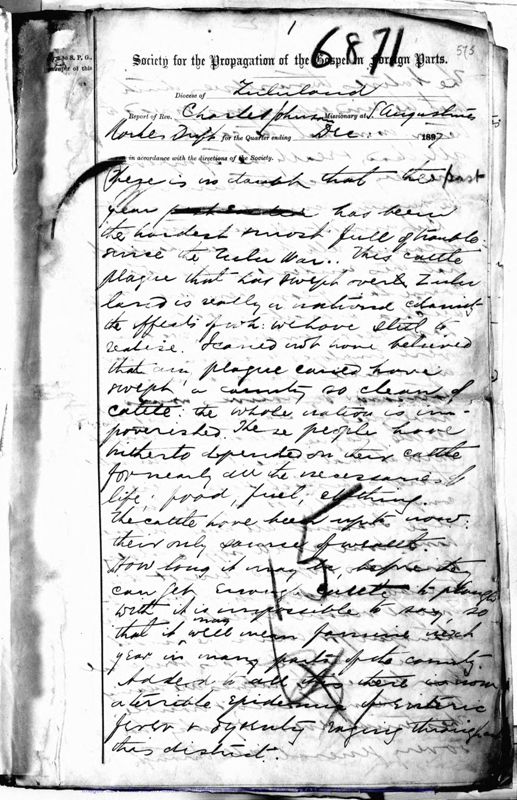 6871
573
Society for the Propagation of the Gospel in Foreign Parts.
Diocese of Zululand
Report of Rev. Charles Johnson Missionary at S. Augustines
Rorkes Drift for the Quarter ending Dec: 1897
in accordance with the directions of the Society.
There is no doubt that the past
year has been
the hardest & most full of trouble
since the Zulu War. This cattle
plague that has swept over Zulu
land is really a national calamity
the effects of wh: we have still to
realise. I could not have believed
that any plague could have
swept a country so clean of
cattle: the whole nation is im-
poverished. These people have
hitherto depended on their cattle
for nearly all the necessaries of
life; food, fuel, clothing.
The cattle have been up to now
their only source of wealth.
How long it may be, before they
can get enough cattle to plough
with it is impossible to say, so
that it may well mean famine next
year in many parts of the country.
Added to all this there is now
a terrible epidemic of Enteric
fever & dysentry raging throughout
this district.